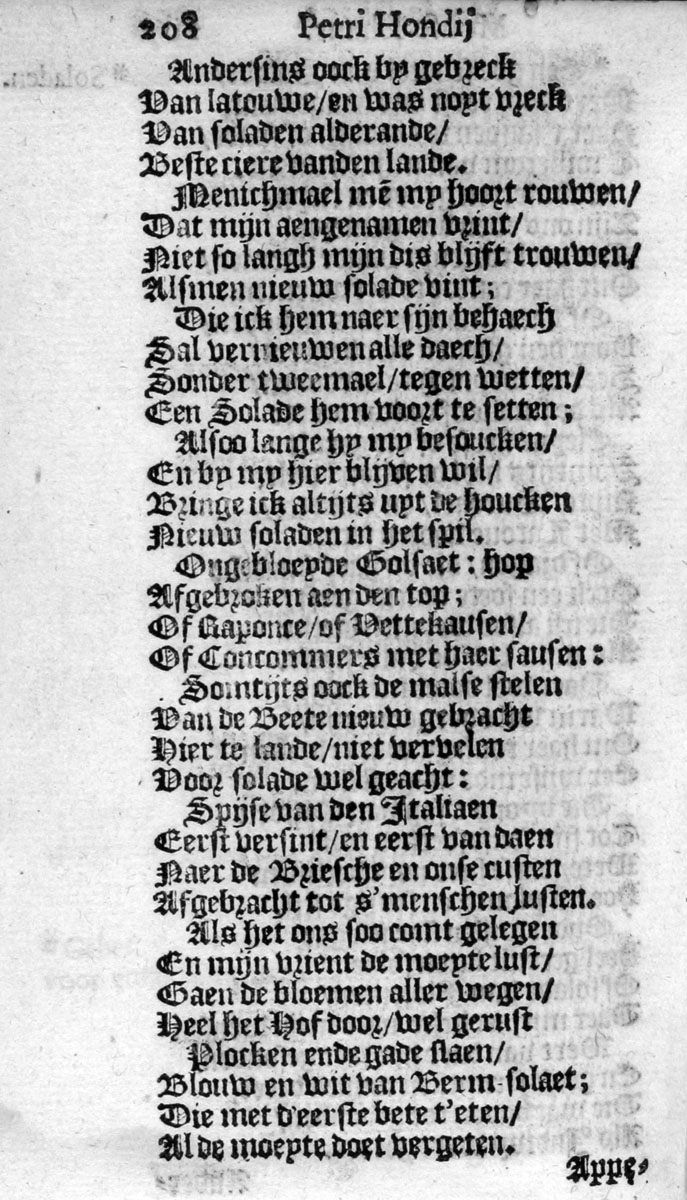 208 Petri Hondij
Andersins oock by gebreck
Van latouwe/en was noyt vreck
Van soladen alderande/
Beste ciere vanden lande.
Menichmael mē my hoort rouwen/
Dat mijn aengenamen vrint/
Niet so langh mijn dis blijft trouwen/
Alsmen nieuw solade vint;
Die ick hem naer sijn behaech
Sal vernieuwen alle daech/
Sonder tweemael/tegen wetten/
Een Solade hem voort te setten;
Alsoo lange hy my besoucken/
En by my hier blijven wil/
Bringe ick altijts uyt de houcken
Nieuw soladen in het spil.
Ongebloeyde Golsaet: hop
Afgebroken aen den top;
Of Raponce/of Vettekausen/
Of Concommers met haer sausen:
Somtijts oock de malse stelen
Van de Beete nieuw gebracht
Hier te lande/niet vervelen
Voor solade wel geacht:
Spijse van den Italiaen
Eerst versint/en eerst van daen
Naer de Briesche en onse custen
Afgebracht tot s'menschen lusten.
Als het ons soo comt gelegen
En mijn vrient de moeyte lust/
Gaen de bloemen aller wegen/
Heel het Hof door/wel gerust
Plocken ende gade slaen/
Blouw en wit van Berm-solaet;
Die met d'eerste bete t'eten/
Al de moeyte doet vergeten.
Appe-